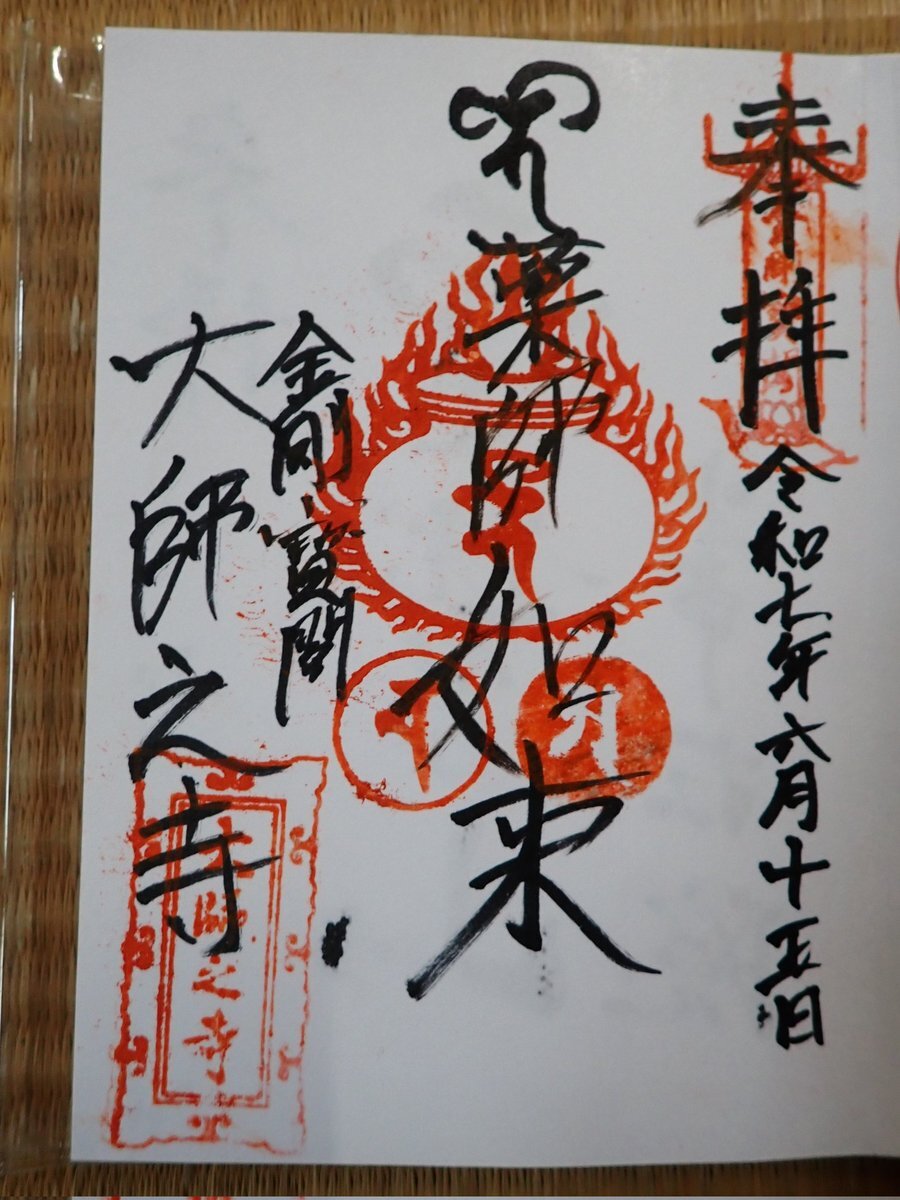 奉拝
令和七年六月十五日
薬師如来
金剛寳閣
大師之寺
大師之寺